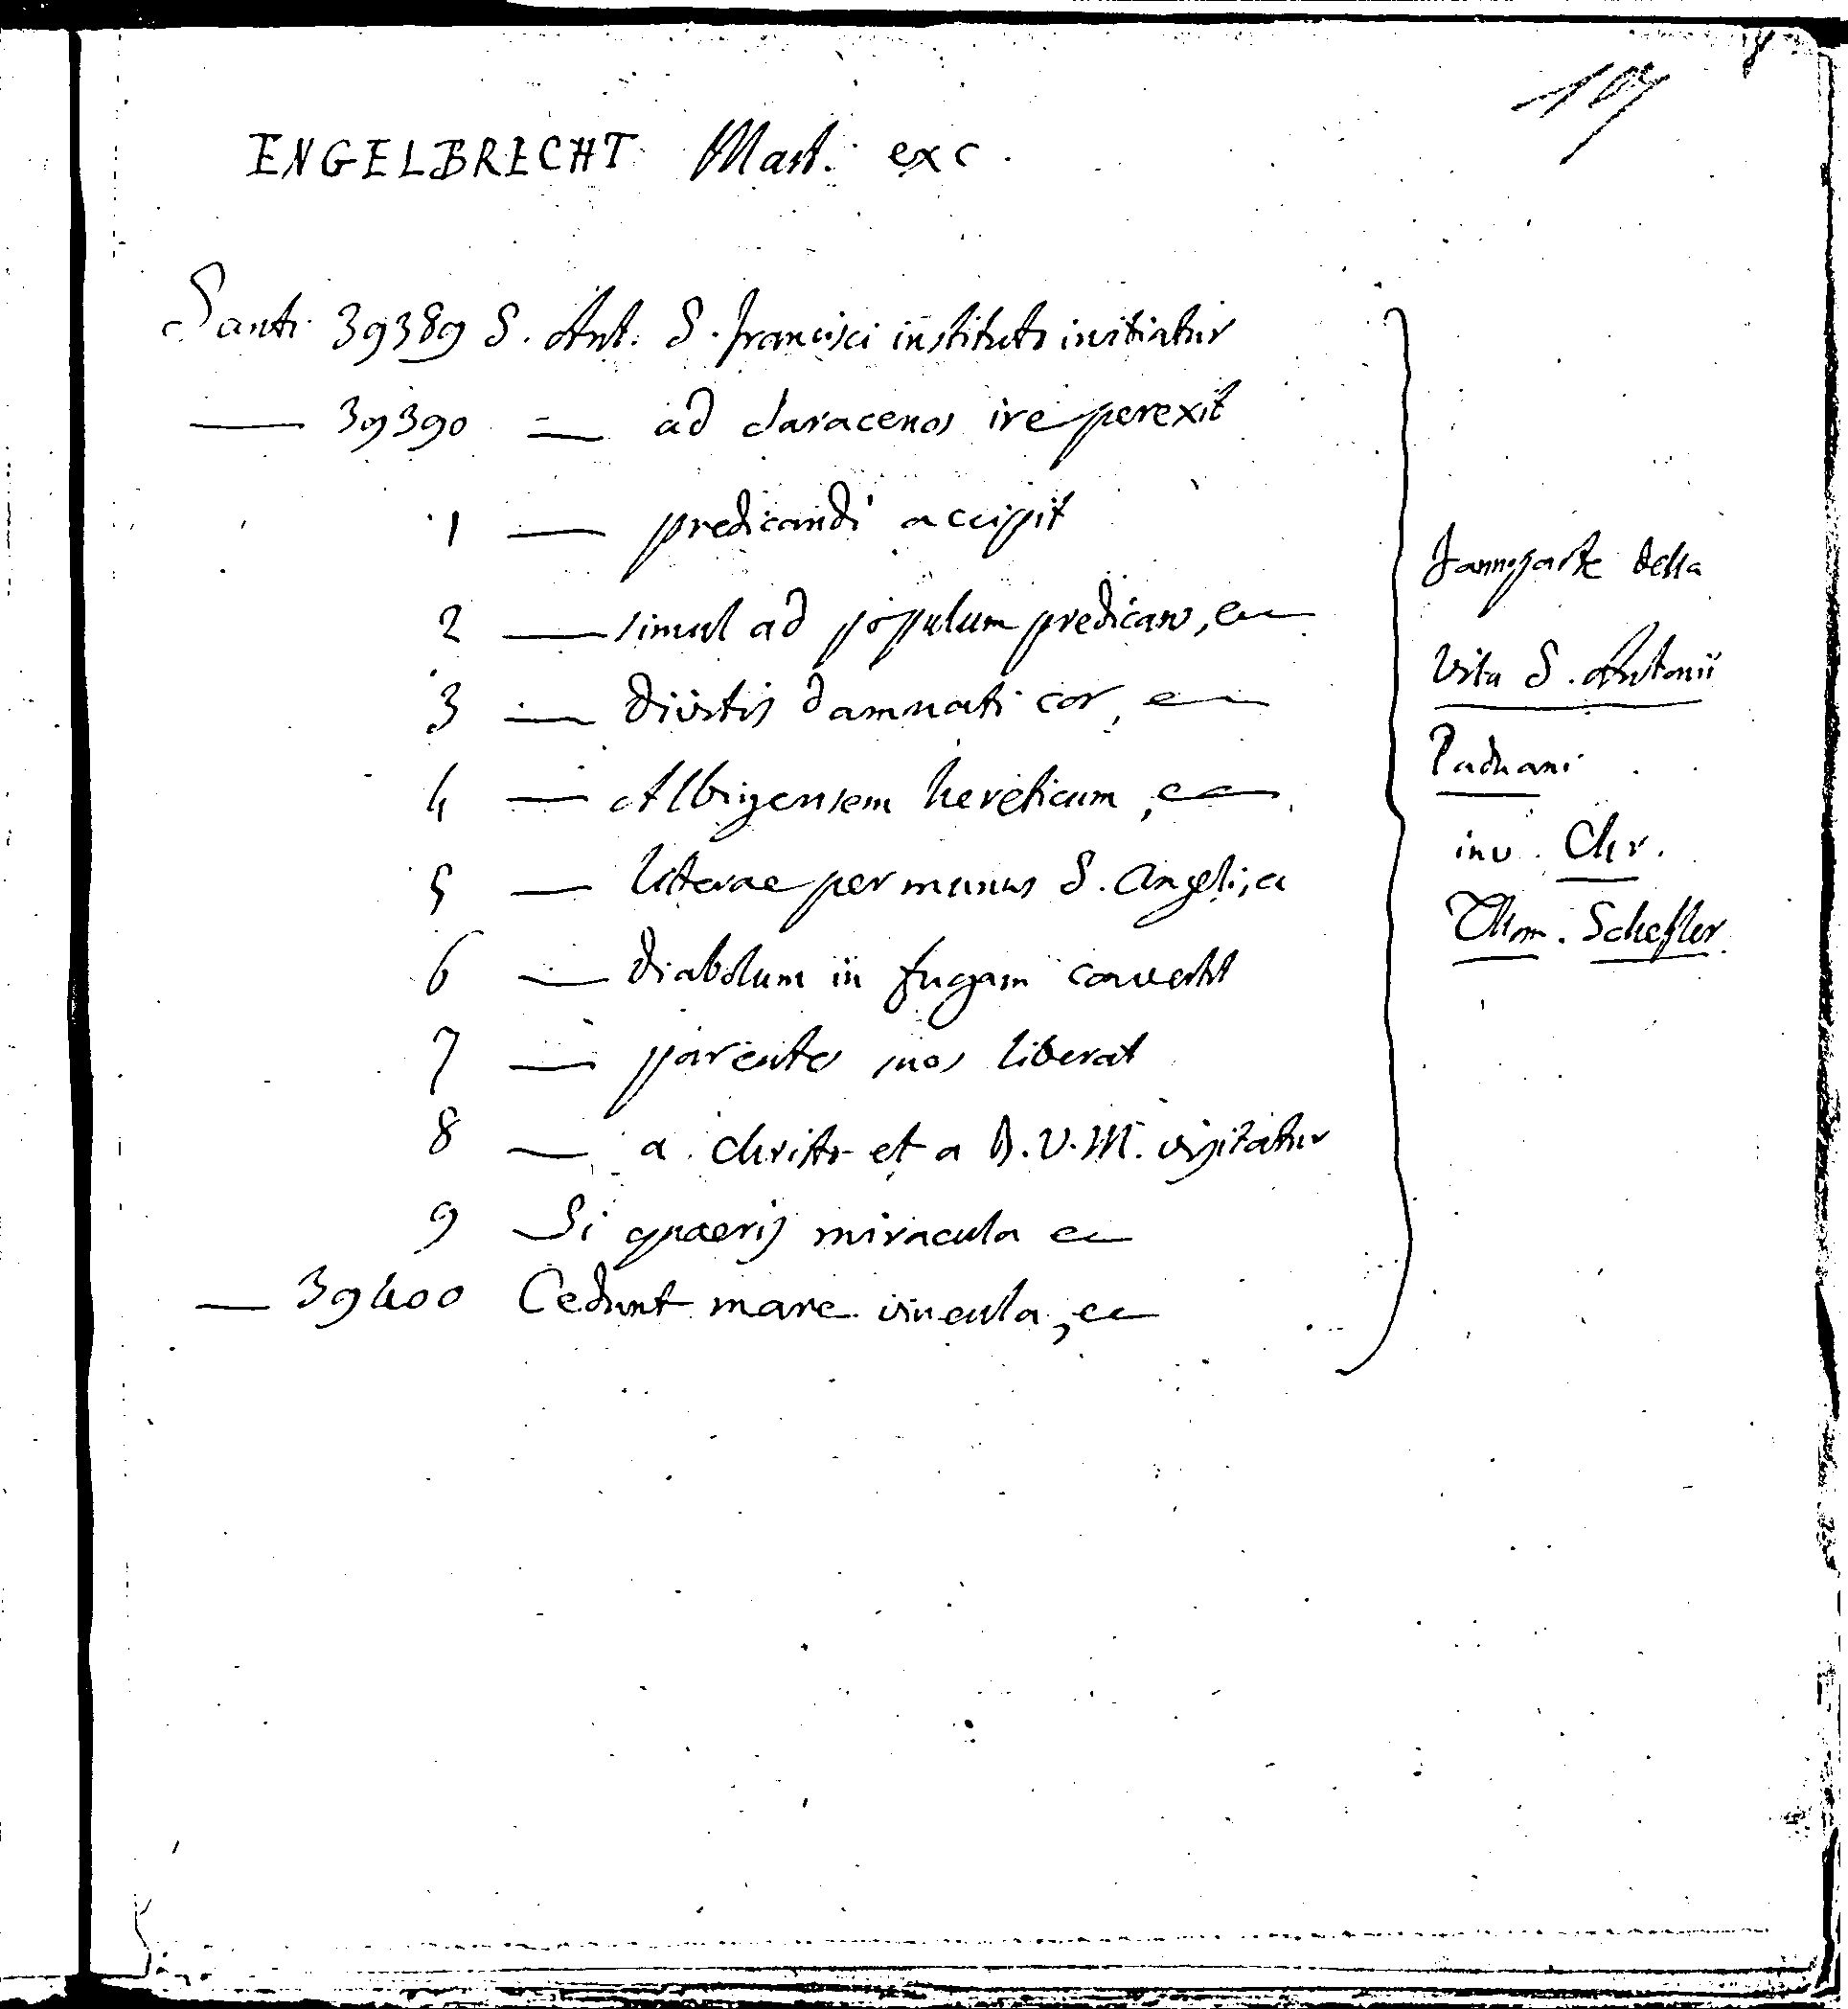 107
ENGELBRECHT Mart. exc.
Santi 39389 S. Ant. S. francisci instituto initiatur
— 39390 — ad saracenos ire perexit
1 — predicandi accipit
2 — simul ad populum predicans, ec
3 — divitis damnati cor, ec
4 — Albigensem hereticum, ec
5 — literae per manus S. Angeli, ec
6 — diabolum in fugam convertit
7 — parentes suos liberat
8 — a christo et a B.V.M. visitatur
9 Si quaeris miracula ec
— 39400 Cedunt mare vincula, ec
fanno parte della
Vita S. Antonii
Paduani
inv. Chr.
Thom. Scheffler